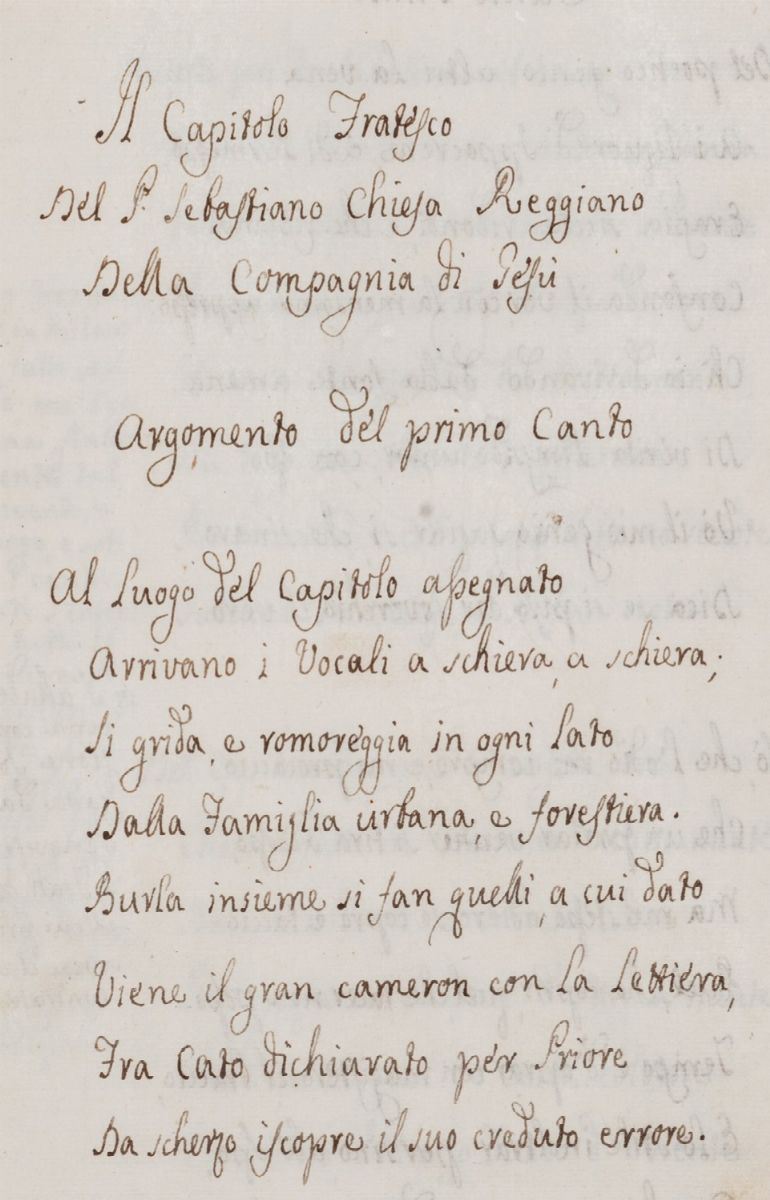 Il Capitolo Fratesco
Del P. Sebastiano Chiesa Reggiano
Della Compagnia di Gesù
Argomento del primo Canto
Al Luogo del Capitolo assegnato
Arrivano i Vocali a schiera, a schiera;
Si grida, e romoreggia in ogni Lato
Dalla Famiglia urbana, e forestiera.
Burla insieme si fan quelli, a cui dato
Viene il gran cameron con La Lettiera,
Fra Cato dichiarato per Priore
Da scherzo iscopre il suo creduto errore.